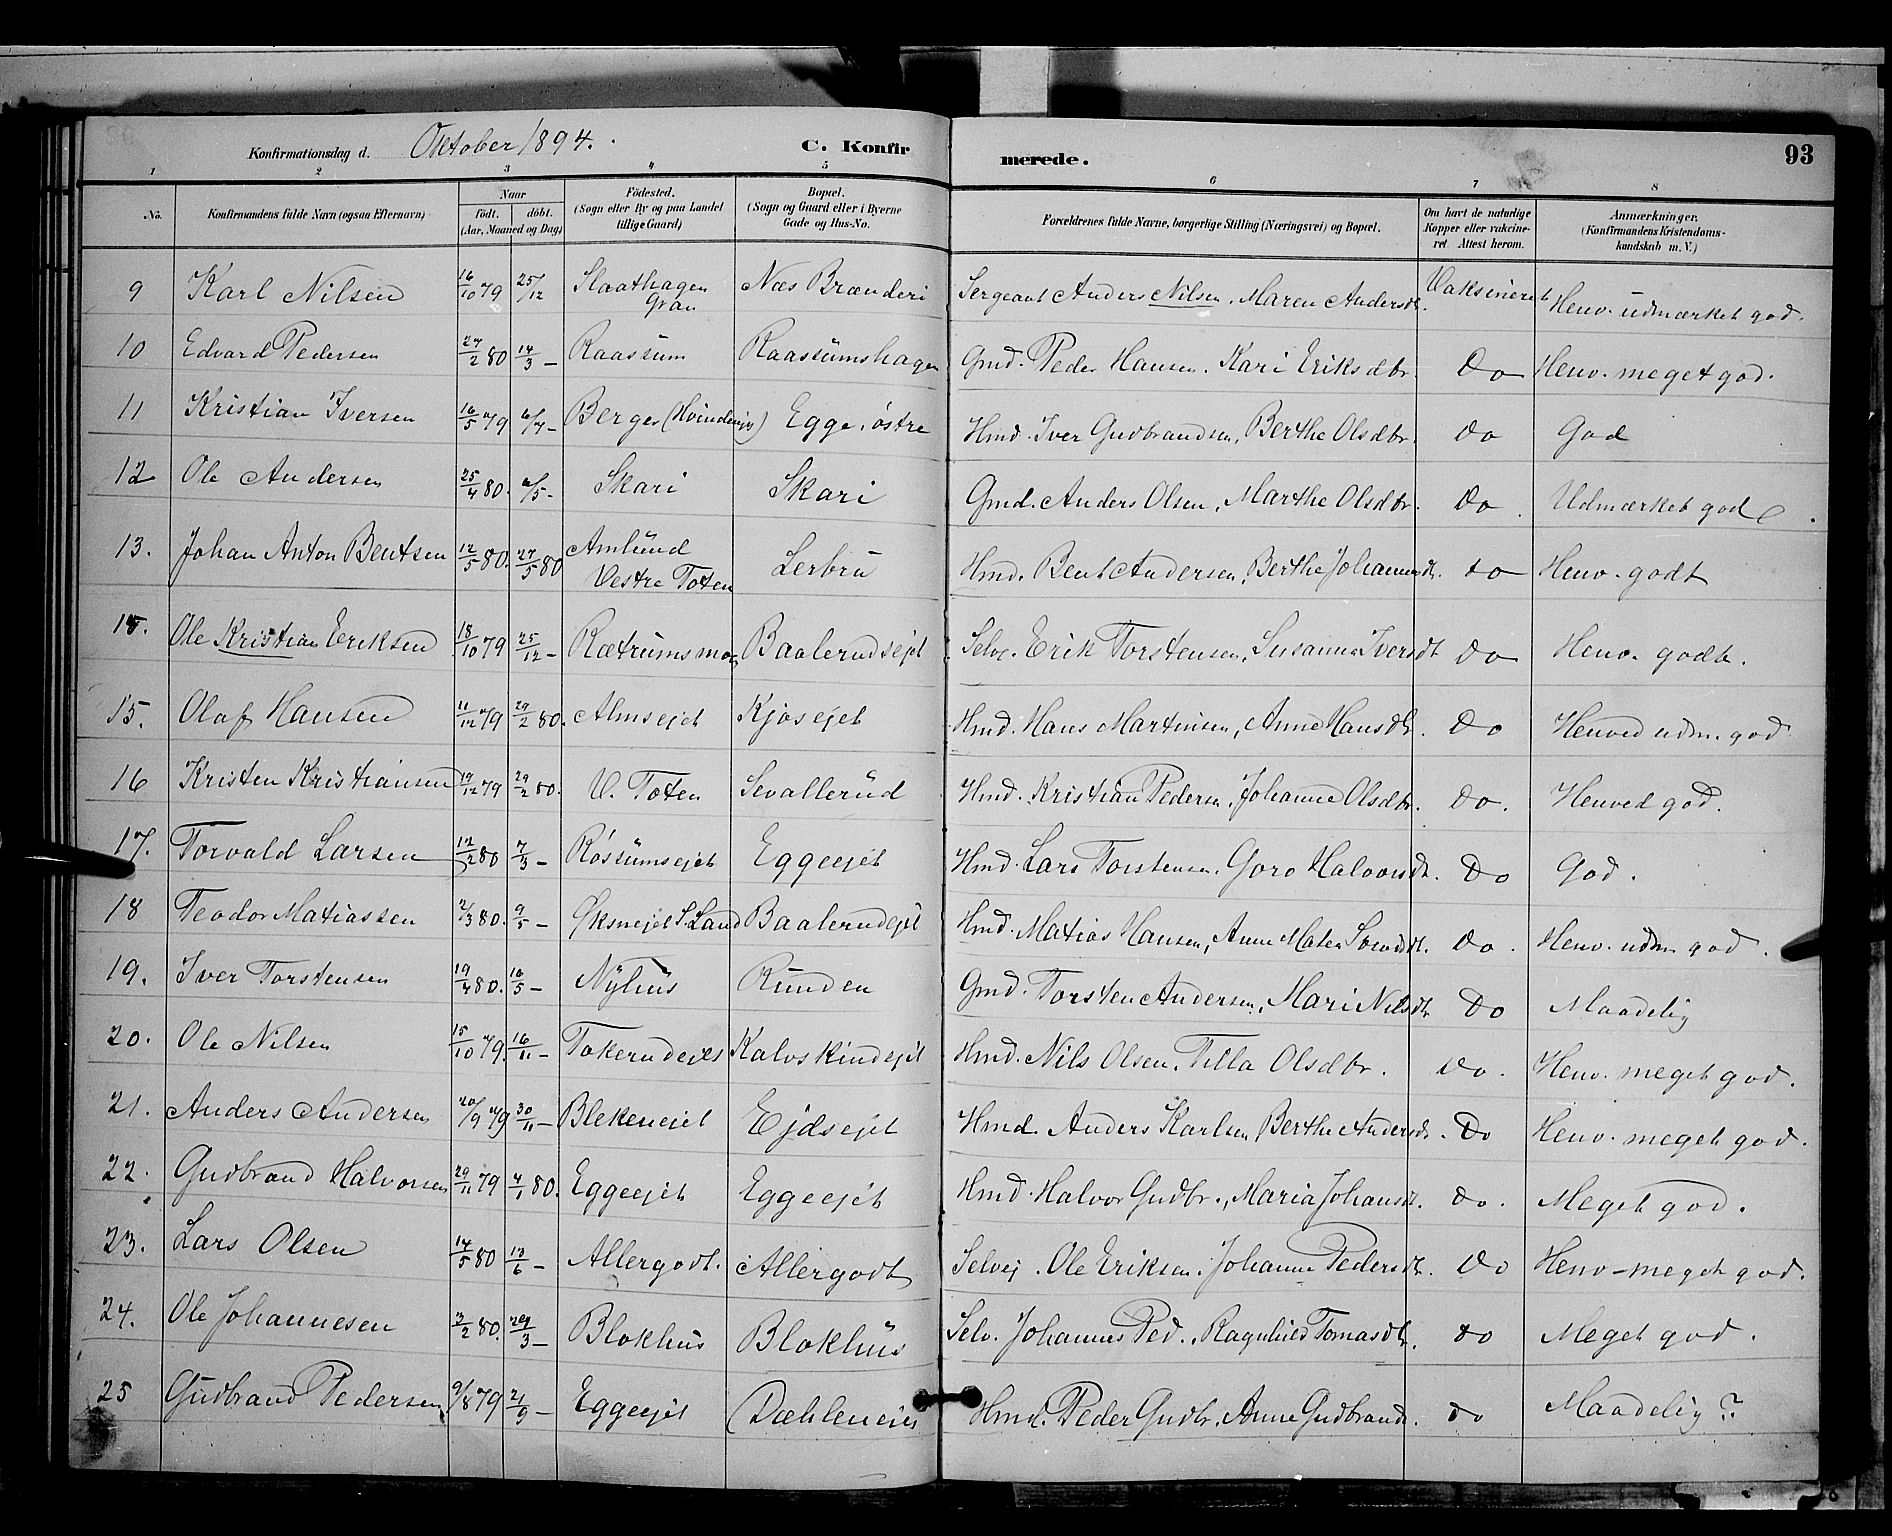 Konfirmationsdag d. Oktober 1894. C. Konfirmerede. 93
1 2 3 4 5 6 7 8
No. Konfirmandens fulde Navn (ogsaa Efternavn) Naar födt. döbt. (Aar, Maaned og Dag) Födested. (Sogn eller By og paa Landet tillige Gaard) Bopæl. (Sogn og Gaard eller i Byerne Gade og Hus-No. Forældrenes fulde Navne, borgerlige Stilling (Næringsvei) og Bopæl. Om havt de naturlige Kopper eller vakcineret. Attest herom. Anmærkninger. (Konfirmandens Kristendomskundskab m. V.)
9 Karl Nilsen 16/10 79 25/12 Slaathagen Gran Næs Brænderi Sergeant Anders Nilsen, Maren Andersdt. Vaksineret Henv. udmærket god.
10 Edvard Pedersen 27/2 80 14/3 – Raassum Raassumshagen Gmd. Peder Hansen. Kari Eriksdtr. Do Henv. meget god.
11 Kristian Iversen 16/5 79 6/7 – Berger Egge, østre Hmd. Iver Gudbrandsen, Berthe Olsdtr. Do God
12 Ole Andersen 25/4 80. 6/5 – Skari Skari Gmd. Anders Olsen, Marthe Olsdtr. Do. Udmærket god.
13. Johan Anton Bentsen 12/5 80. 27/5 80 Amlund Vestre Toten Lerbru Hmd. Bent Andersen, Berthe Johannesdt. do Henv. godt
15. Ole Kristian Eriksen 18/10 79 25/12 – Rætrumsmoen Baalerudsejet Selve. Erik Torstensen, Susanna Iversdt. Do Henv. godt.
15. Olaf Hansen 11/12 79 29/2 80. Almsejet Kjosejet Hmd. Hans Martinsen, Anne Hansdt. Do Henved udm. god
16 Kristen Kristiansen 19/12 79 29/2 80. V. Toten Sevallerud Hmd. Kristian Pedersen, Johanne Olsdtr. Do. Henved god.
17. Torvald Larsen 12/2 80 7/3 – Røssumsejet Eggeejet Hmd. Lars Torstensen. Goro Halvorsdt. Do God.
18 Teodor Matiassen 2/3 80. 9/5 – Øksnejet S. Land Baalerudejet Hmd. Matias Hansen, Anne Do. Henv. udm god.
19. Iver Torstensen 19/4 80. 16/5 – Nyhus Runden Gmd. Torsten Andersen, Mari Nilsdt. Do Maadelig
20. Ole Nilsen 15/10 79. 16/11 – Tokerudejet Kalvskindejet Hmd. Nils Olsen, Tilla Olsdtr. Do. Henv. meget god.
21. Anders Andersen 20/9 79 30/11 – Blekenejet Ejdsejet Hmd. Anders Karlsen Berthe Andersdt. Do Henv. meget god.
22. Gudbrand Halvorsen 29/11 79 4/1 80. Eggeejet Eggeejet Hmd. Halvor Gudbr., Maria Johansdt. Do. Meget god.
23. Lars Olsen 14/5 80 13/6 – Allergodt. Allergodt Selvej. Ole Eriksen. Johanne Pedersdt. Do Henv – meget god.
24. Ole Johannesen 3/2 80. 29/3 – Blokhus Blokhus Selv. Johannes Ped. Ragnhild Tomasdtr. do Meget god.
25 Gudbrand Pedersen 9/8 79 21/9 – Eggeejet Dæhlenejet Hmd. Peder Gudbr. Anne Gudbrandt. do Maadelig?